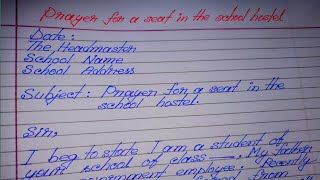 Prayer for a seat in the school hostel.
Date :
The Headmaster
School Name
School Address
Subject : Prayer for a seat in the
school hostel.
Sir,
I beg to state I am a student of
your school of class My father
government employee. Recently
from